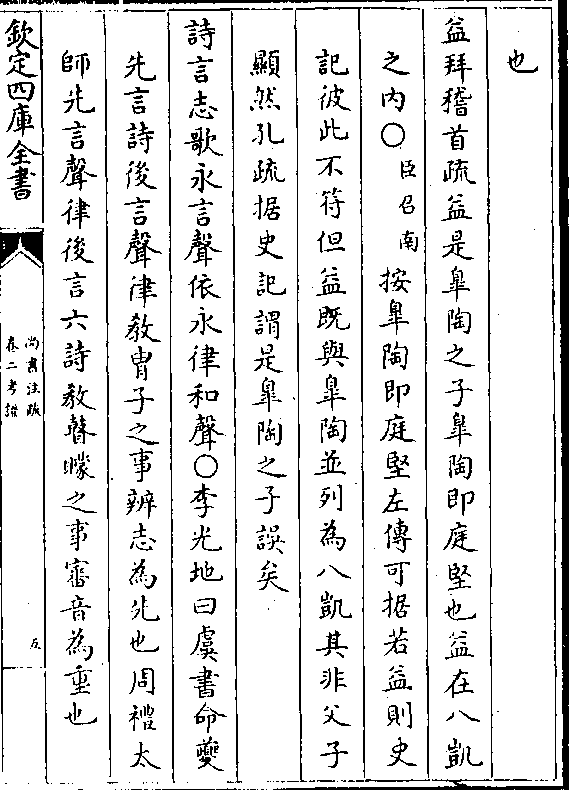 也
益拜稽首疏益是皐陶之子皐陶即庭堅也益在八凱
之内〇臣召南按皐陶即庭堅左傳可据若益則史
記彼此不符但益既與皐陶並列為八凱其非父子
顯然孔疏据史記謂是皐陶之子誤矣
詩言志歌永言聲依永律和聲〇李光地曰虞書命夔
先言詩後言聲律教胄子之事辨志為先也周禮太
師先言聲律後言六詩教瞽矇之事審音為重也
欽定四庫全書
尚書注疏
卷二考證